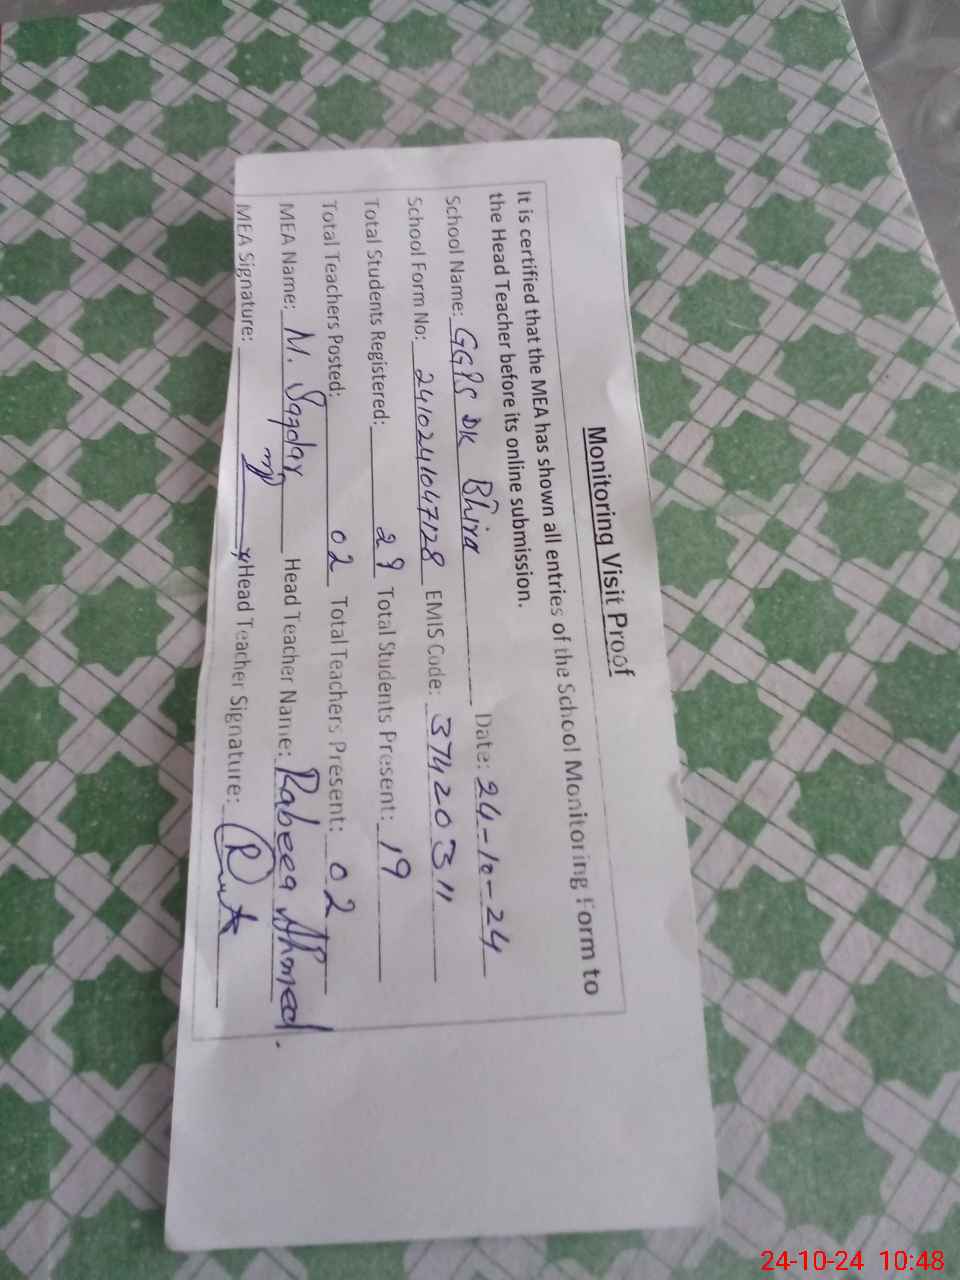 Monitoring Visit Proof
It is certified that the MEA has shown all entries of the School Monitoring Form to
the Head Teacher before its online submission.
School Name: GGPS DK Bhira Date: 24-10-24
School Form No: 2410241047128 EMIS Code: 37420311
Total Students Registered: 29 Total Students Present: 19
Total Teachers Posted: 02 Total Teachers Present: 02
MEA Name: M. Safdar Head Teacher Name: Rabeea Ahmed.
MEA Signature: Head Teacher Signature:
24-10-24 10:48